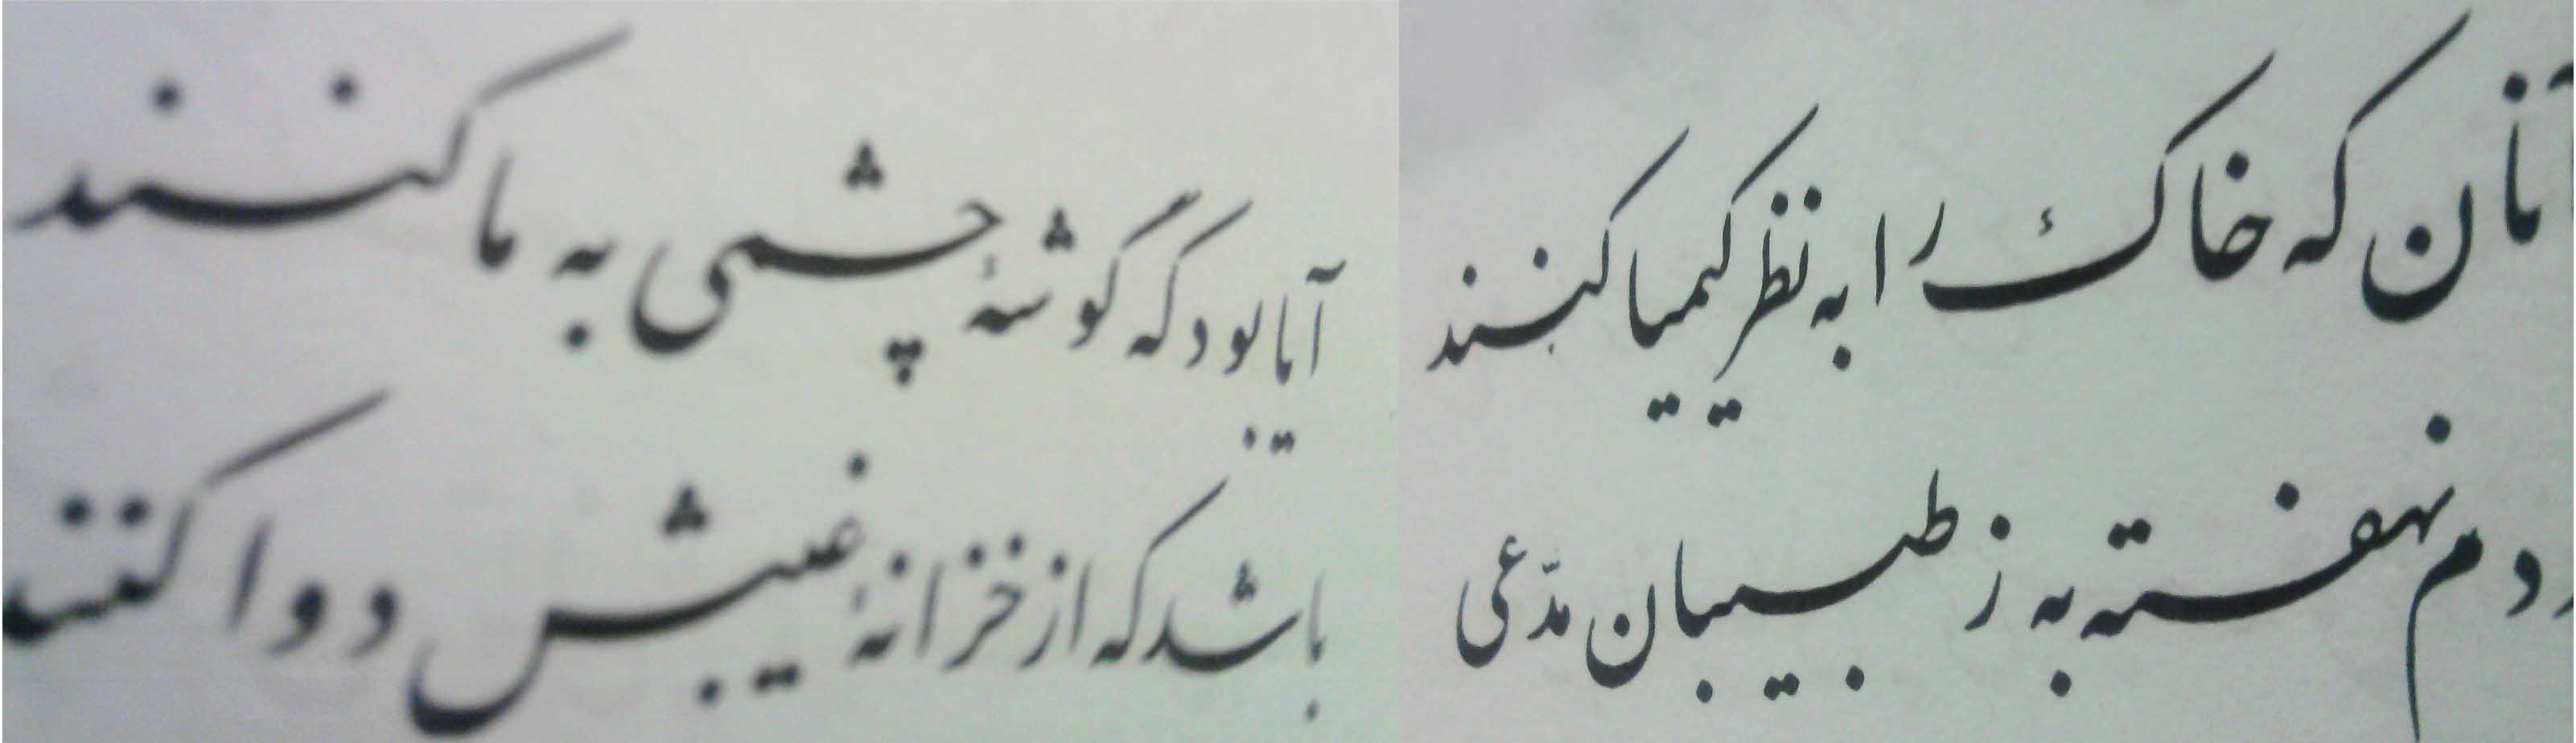 آنان که خاک را به نظر کیمیا کنند
آیا بود که گوشهٔ چشمی به ما کنند
دردم نهفته به ز طبیبان مدّعی
باشد که از خزانهٔ غیبش دوا کنند